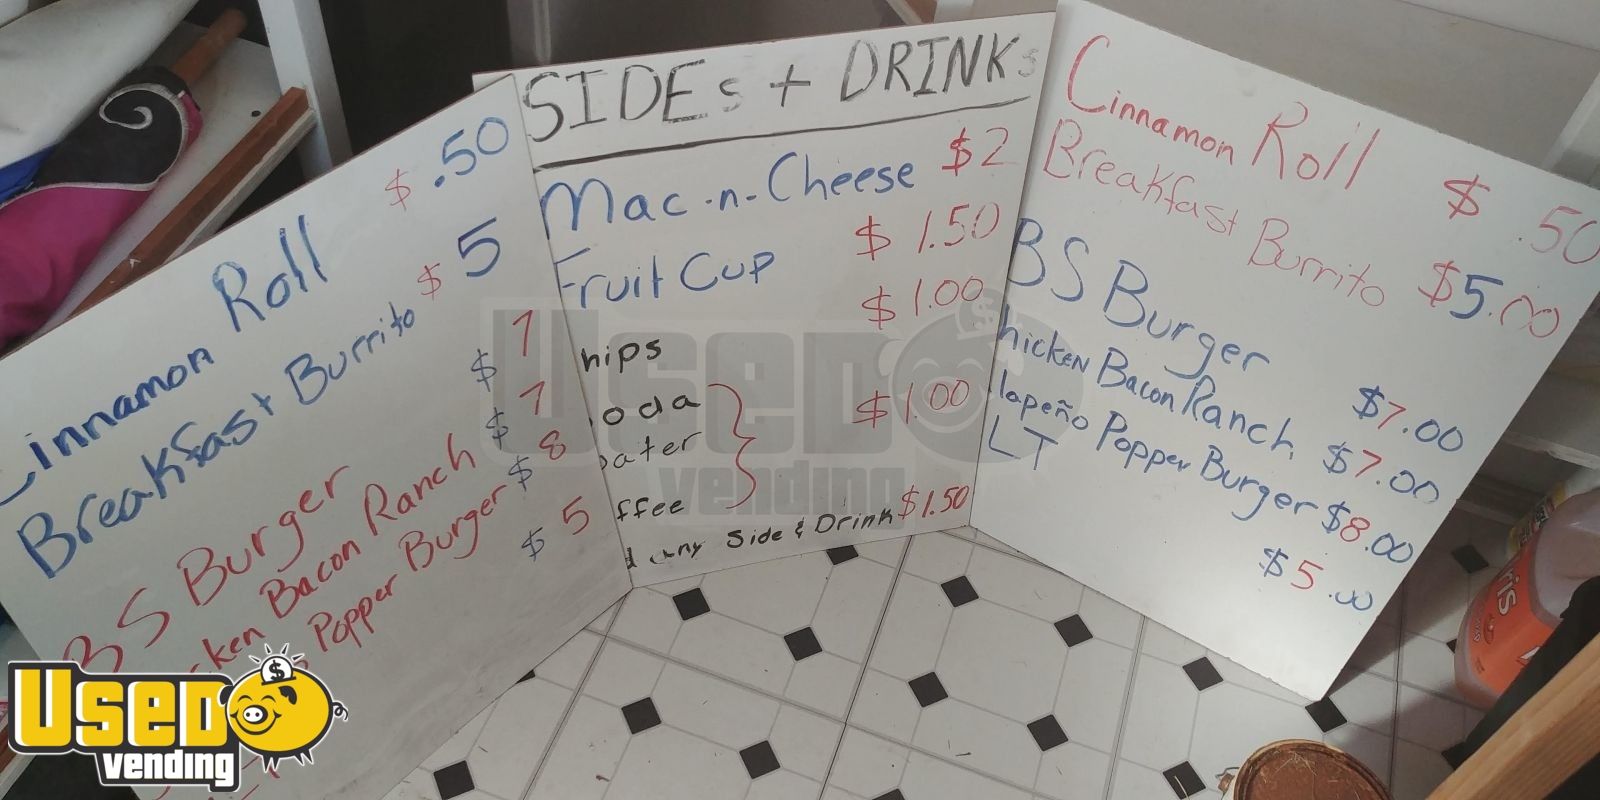 Cinnamon Roll $ .50
Breakfast Burrito $ 5
BS Burger $ 7
cken Bacon Ranch $ 7
Popper Burger $ 8
$ 5
SIDEs + DRINKs
Mac-n-Cheese $2
Fruit Cup $1.50
hips $1.00
oda
ater $1.00
ffee
any Side & Drink $1.50
Cinnamon Roll $ .50
Breakfast Burrito $5.00
BS Burger $7.00
hicken Bacon Ranch $7.00
lapeño Popper Burger $8.00
LT $5.00
USED vending
USED vending